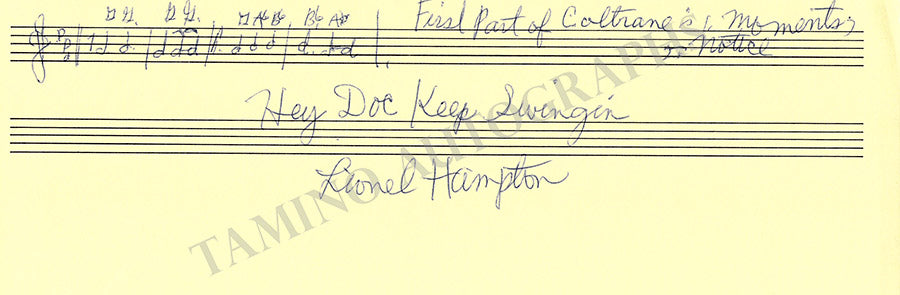 First Part of Coltrane's "Moments
Notice"
Hey Doc Keep Swingin
Lionel Hampton
TAMINO AUTOGRAPHS